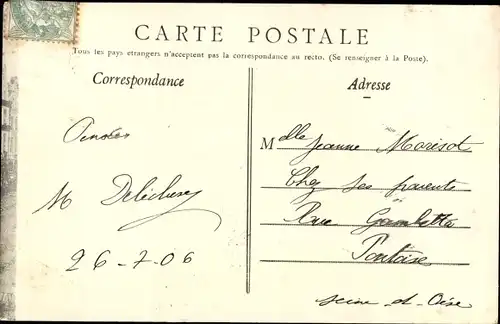 CARTE POSTALE
Tous les pays etrangers n'acceptent pas la correspondance au recto. (Se renseigner à la Poste).
Correspondance
Adresse
Mdlle Jeanne Morisot
Chez ses parents
Rue Gambetta
Pontoise
Seine-et-Oise
Pensées
M
26-7-06